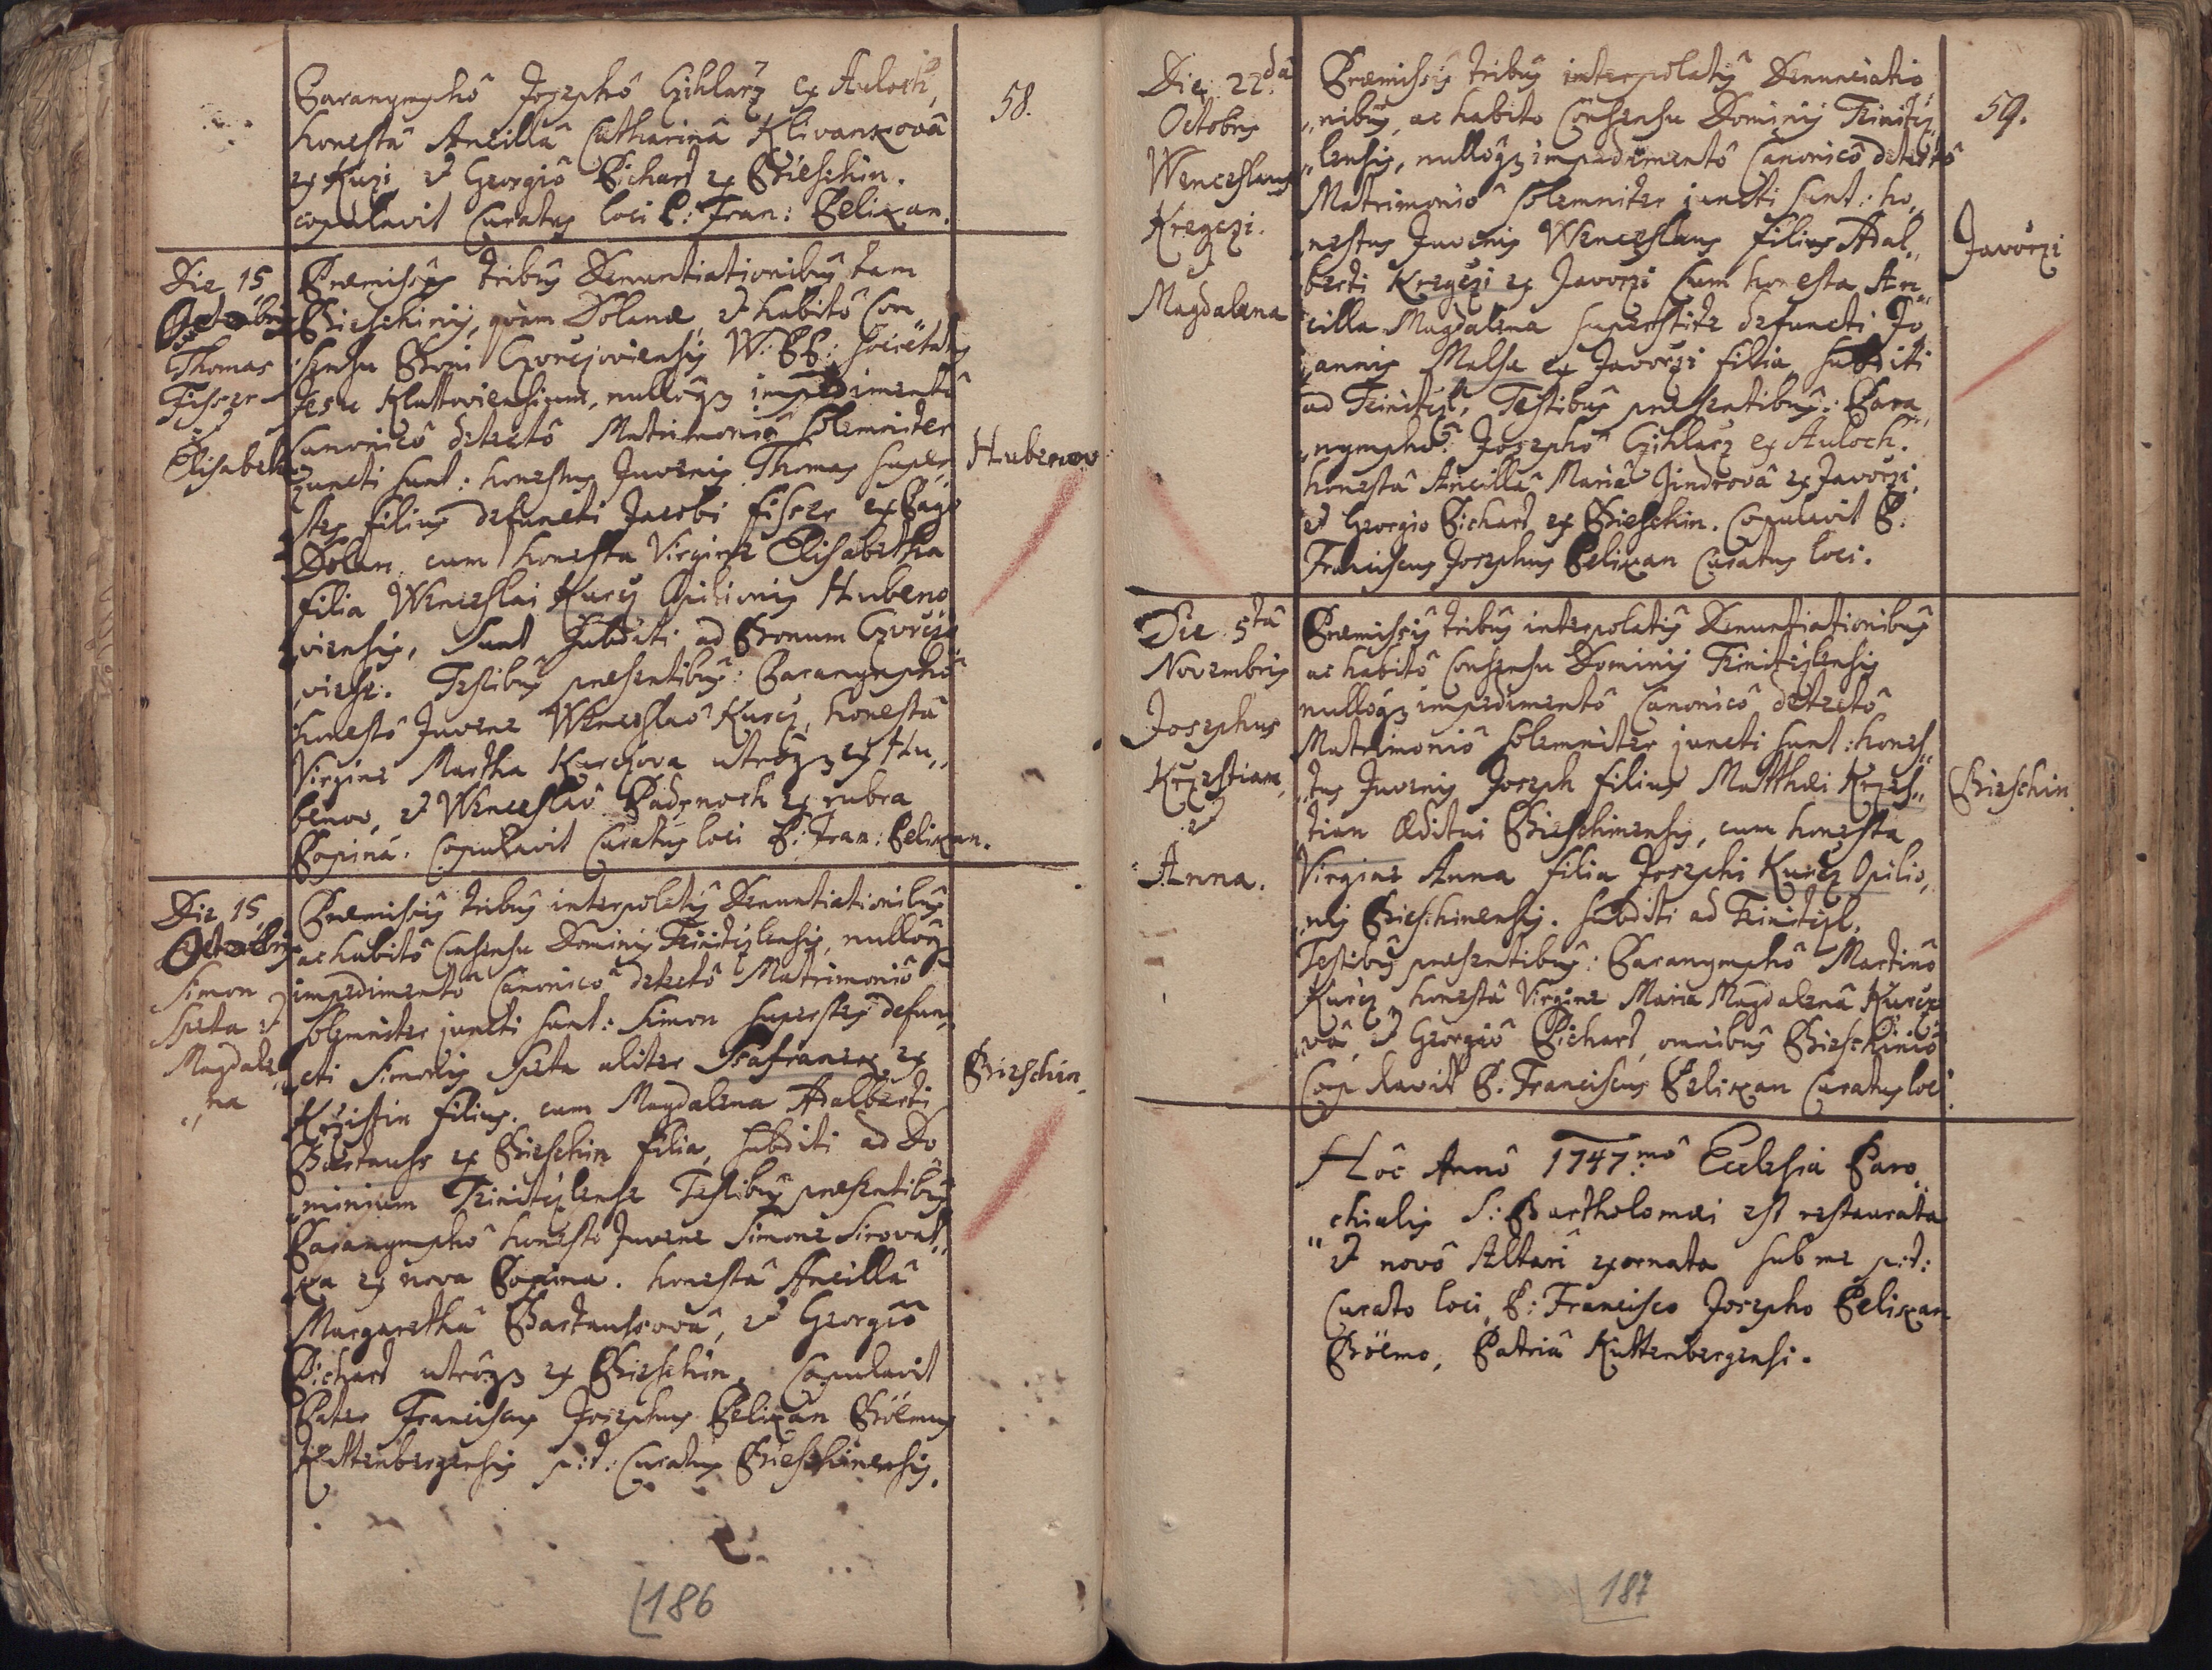 58.
Paranymphô Josephô Czihlarz ex Auloch,
honestâ Ancillâ Catharinâ Klivanxovâ
ex Kuzi, et Georgiô Pichart ex Bieschin.
copulavit Curatus loci P: Fran: Pelixan.
Die 15
Octobris
Thomas
Fisser
et
Elisabeth
Præmissis tribus Denuntiationibus tam
Bieschinij, quam Dolanæ et habitô Con„
„sensu Boni Czvrczoviensis W: PP: Societatis
Jesu Klattoviensium, nullôq3 impedimentô
Canonicô detectô Matrimoniô solemniter
juncti sunt: honestus Juvenis Thomas super„
„stes filius defuncti Jacobi Fisser ex Pago
Dolan, cum honesta Virgine Elisabetha
filia Wenceslai Kurcz Opilionis Hubeno„
„viensis, sunt subditi ad Bonum Czvrczo„
„viense. Testibus præsentibus: Paranymphô
honestô Juvene Wenceslaô Kurcz, honestâ
Virgine Martha Kurczova utrôq3 ex Hu„
benow, et Wenceslaô Padrnoch ex rubra
Popina. Copulavit Curatus loci P: Fran: Pelixan.
Hubenow
Die 15
Octobris
Simon
Speta et
Magdale„
„na
Præmissis tribus interpolatis Denuntiationibus
ac habitô Consensu Dominij Teinitzlensis, nullôq3
impedimentô Canonicô detectô Matrimoniô
solemniter juncti sunt: Simon superstes defun„
„cti Simonis Speta aliter Ssafranex ex
Krzistin filius, cum Magdalena Adalberti
Bartauss ex Bieschin filia, subditi ad Do„
„minium Teinitzlense Testibus præsentibus
Paranymphô honesto Juvene Simone Sirovat„
xa ex nova Popina. honestâ Ancillâ
Margarethâ Bartaussovâ, et Georgiô
Pichart utrôq3 ex Bieschin. Copulavit
Pater Franciscus Josephus Pelixan Böemus
Kuttenbergensis p:t: Curatus Bieschinensis.
Bieschin
186
59.
Die 22dâ
Octobris
Wenceslaus
Kregczi.
et
Magdalena
Præmissis tribus interpolatis Denunciatio„
„nibus, ac habito Consensu Dominij Teinitz„
„lensis, nullôq3 impedimentô Canonicô detectô
Matrimoniô solemniter juncti sunt: ho„
„nestus Juvenis Wenceslaus filius Adal„
berti Kregczi ex Javorzi cum honesta An„
cilla Magdalena superstite defuncti Jo
annis Malse ex Javorzi filia, subditi
ad Teinitzl. Testibus præsentibus: Para„
„nymphô: Josephô Czihlarz ex Auloch.
honestâ Ancillâ Mariâ Jindrovâ ex Javorzi,
et Georgio Pichart ex Bieschin. Copulavit P.
Franciscus Josephus Pelixan Curatus loci.
Javorzi
Die 5tâ
Novembris
Josephus
Krzestian,
et
Anna.
Præmissis tribus interpolatis Denuntiationibus
ac habitô Consensu Dominij Teinitzlensis
nullôq3 impedimentô Canonicô detectô
Matrimoniô solemniter juncti sunt: hones„
„tus Juvenis Joseph filius Matthæi Krzes„
tian Æditui Bieschinensis, cum honesta
Virgine Anna filia Josephi Kurcz Opilio„
„nis Bieschinensis. subditi ad Teinitzl.
Testibus præsentibus: Paranymphô Martinô
Kurcz, honestâ Virgine Maria Magdalenâ Kurczo
„vâ, et Georgiô Pichart, omnibus Bieschinio
Copulavit P. Franciscus Pelixan Curatus loci.
Bieschin
Hôc Annô 1747mô Ecclesia Paro„
chialis S: Bartholomæi est restaurata
et novô Altari exornata sub me p:t:
Curato loci, P: Francisco Josepho Pelixan
Böemo, Patriâ Kuttenbergensi.
187